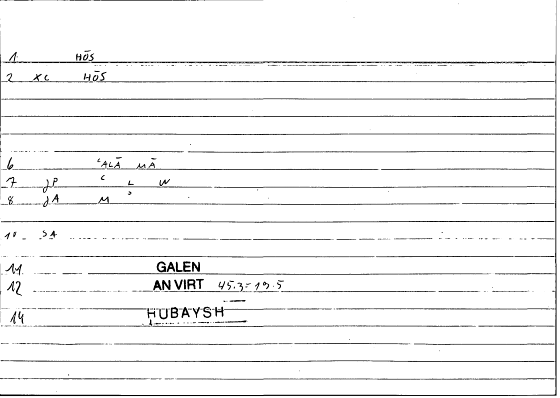 1 HŌS
2 XC HŌS
6 ʿALĀ MĀ
7 JP ʿ L W
8 JA M ʾ
10 SA
11 GALEN
12 AN VIRT 45.3-19.5
14 HUBAYSH